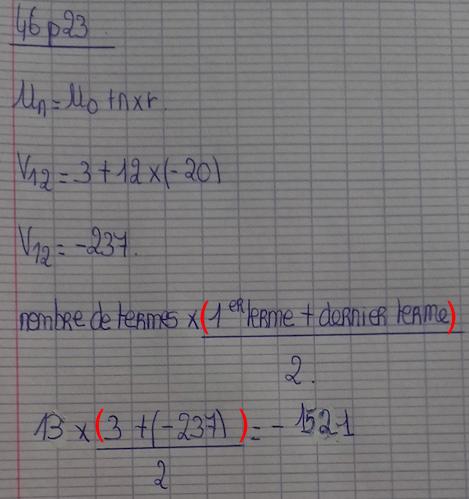 46 p23.
Un = U0 + n x r.
V12 = 3 + 12 x (-20)
V12 = -237.
nombre de termes x (1er terme + dernier terme)
2.
13 x (3 + (-237)) = - 1521
2